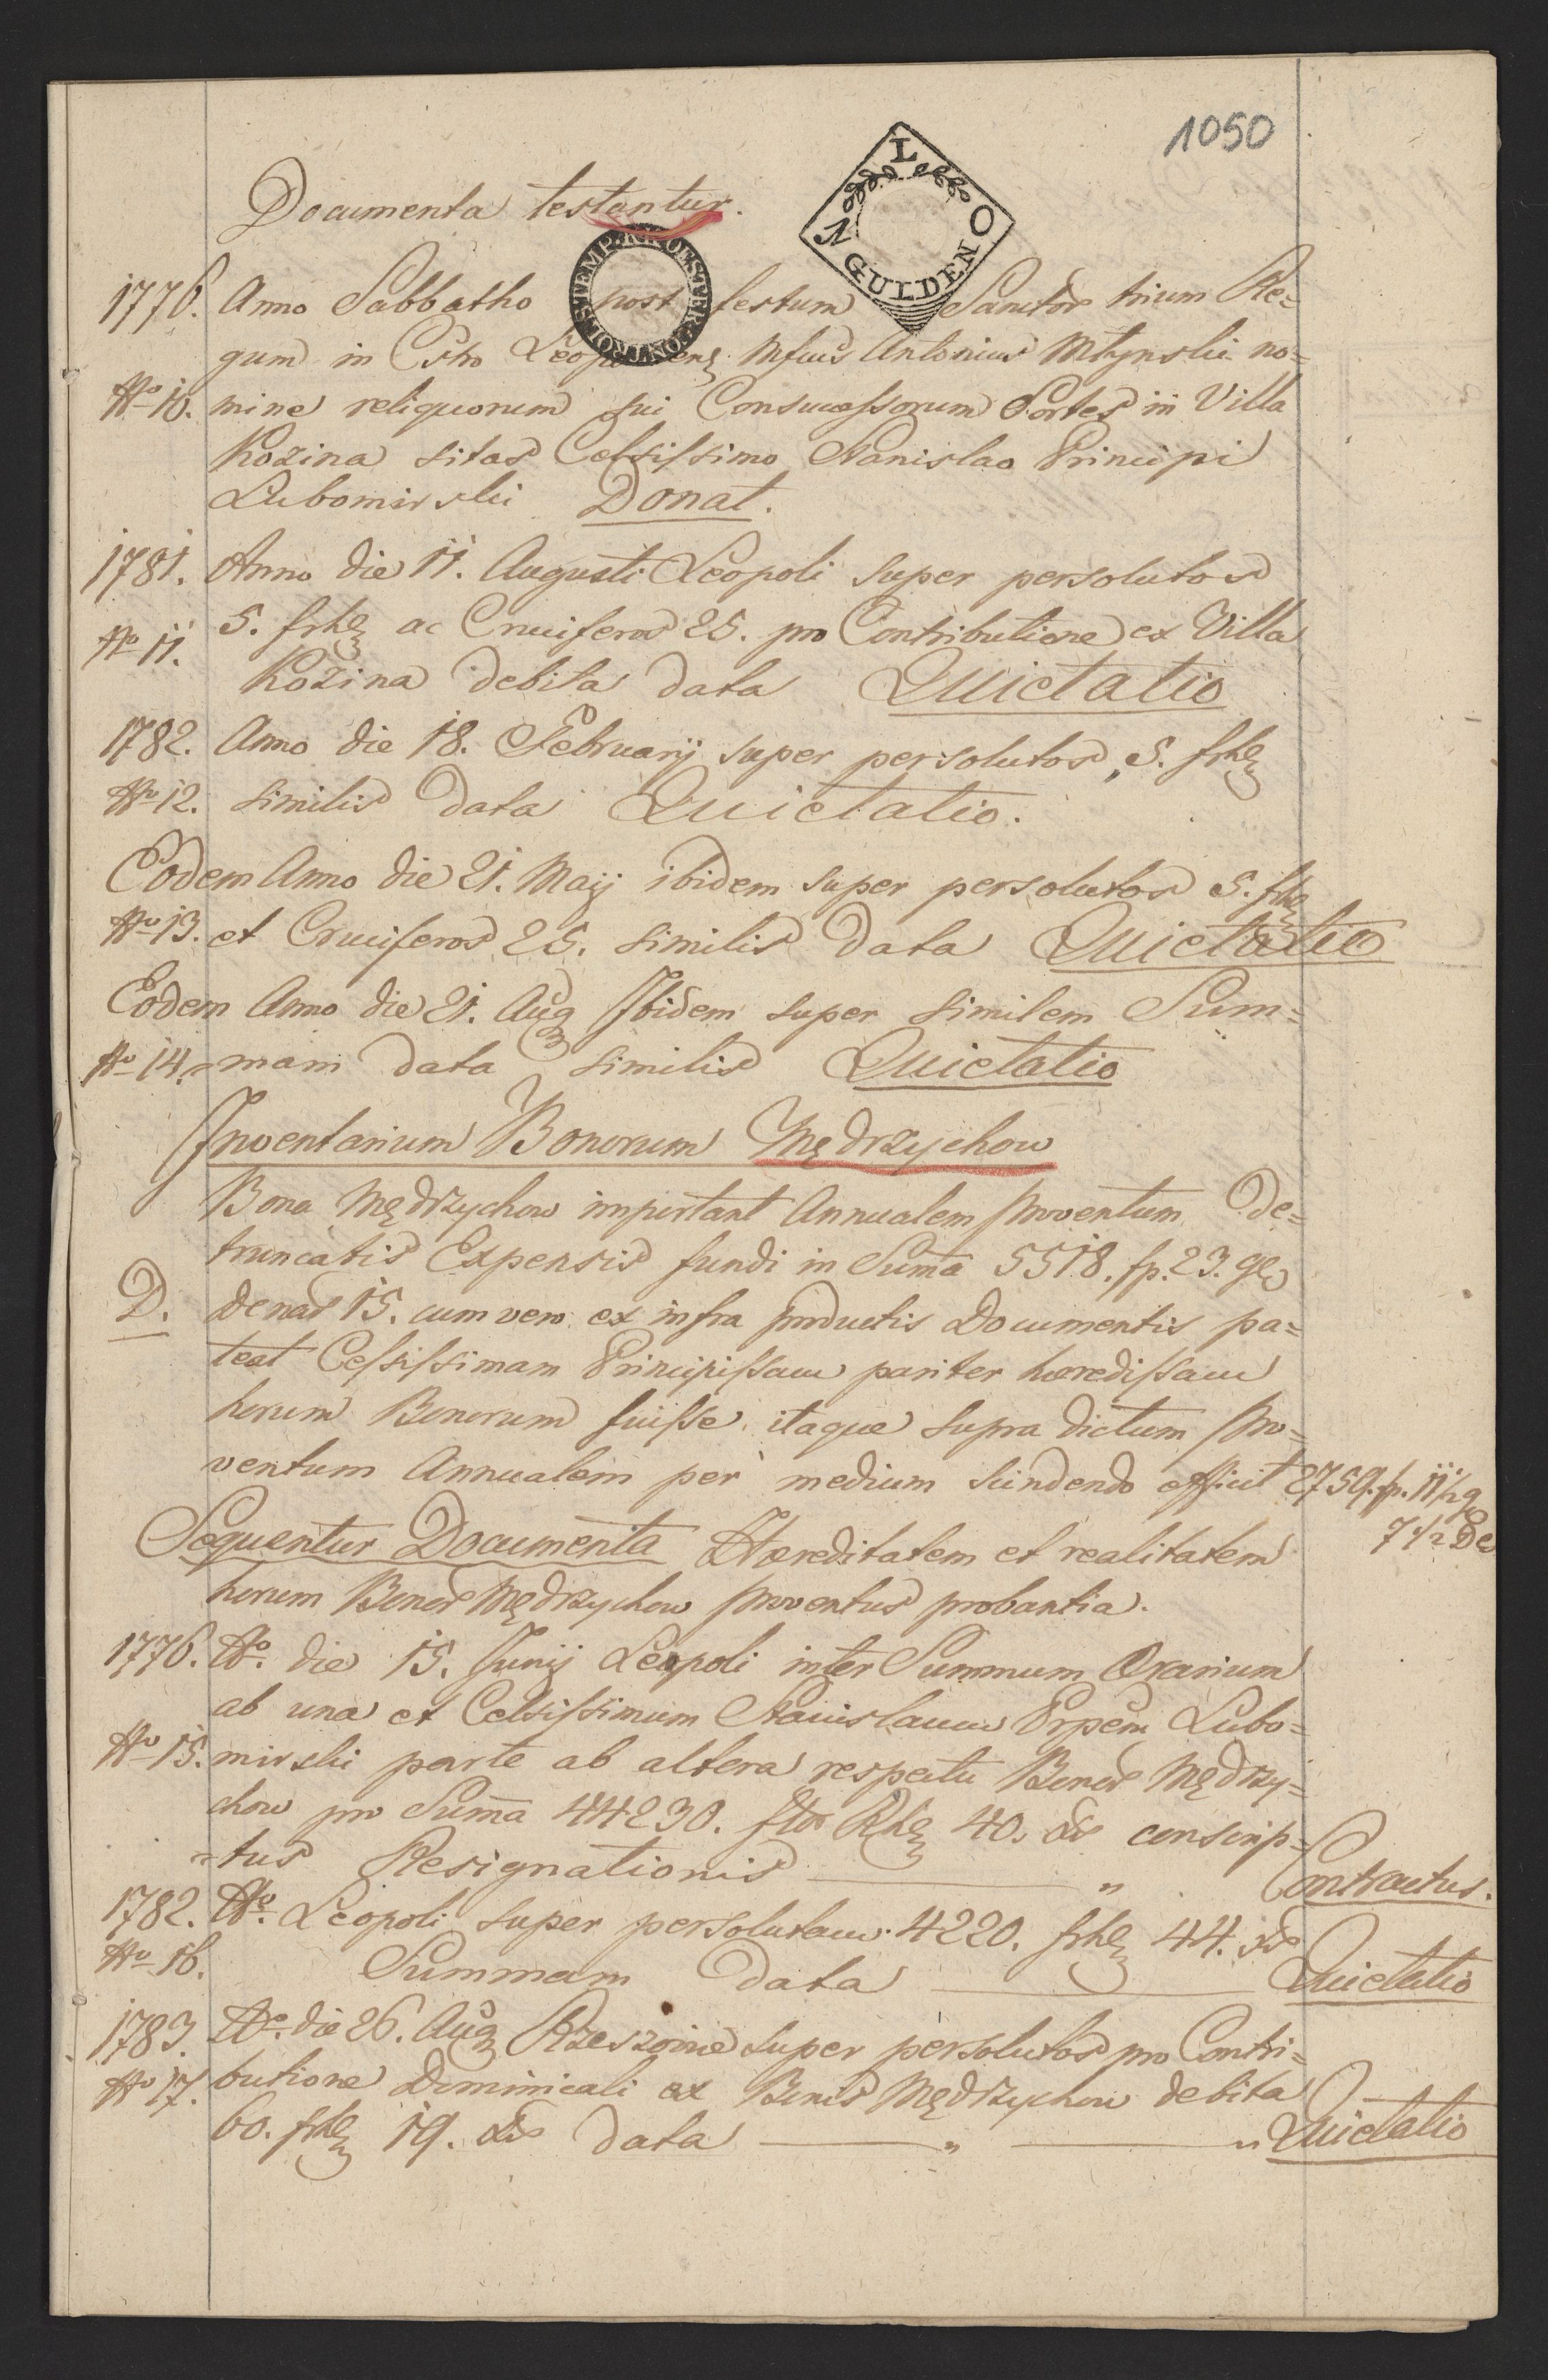 1050
L O N
GULDEN
STEMP. K. K. OESTER. CONTROL
Documenta testantur.
1776. Anno Sabbatho post festum Sanctor trium Re=
gum in Cstro Leopoliens Mfcus Antonius Młynski no=
No 10. mine reliquorum sui Consuccessorum Sortes in Villa
Kozina sitas Celsissimo Stanislao Principi
Lubomirski Donat.
1781. Anno die 11. Augusti Leopoli super persolutos
No 11. 5. frh ac Cruciferos 25. pro Contributione ex Villa
Kozina debita data Quietatio
1782. Anno die 18. Februarij super persolutos 5. frh
No 12. similis data Quietatio.
Eodem Anno die 21. Maij ibidem super persolutos 5. frh
No 13. et Cruciferos 25. similis data Quietatio
Eodem Anno die 21. Aug Ibidem super similem Sum=
No 14. =mam data similis Quietatio
Inventarium Bonorum Mędrzychow
Bona Mędrzychow important Annualem proventum De=
truncatis Expensis fundi in Suma 5518. fp. 23. ge
D. denar 15. cum vero ex infra productis Documentis pa=
teat Celsissimam Principissam pariter hæredissam
horum Bonorum fuisse, itaque supra dictum pro=
ventum Annualem per medium scindendo efficit 2759. fp. 11 1/2 g
7 1/2 De
Sequentur Documenta Hæreditatem et realitatem
horum Bonor Mędrzychow proventus probantia.
1776. Ao. die 15. Junij Leopoli inter Summum Ærarium
ab una et Celsissimum Stanislaum Prpem Lubo=
No 15. mirski parte ab altera respectu Bonor Mędrzy=
chow pro Suma 44230. flor Rh 40. xr conscrip=
=tus Resignationis " Contractus.
1782. Ao. Leopoli super persolutam 4220. frh 44. xr
No 16. Summam data Quietatio
1783. Ao. die 26. Aug Rzeszoviæ super persolutos pro Contri=
No 17. butione Dominicali ex Bonis Mędrzychow debita
60. frh 19. xr data " " Quietatio